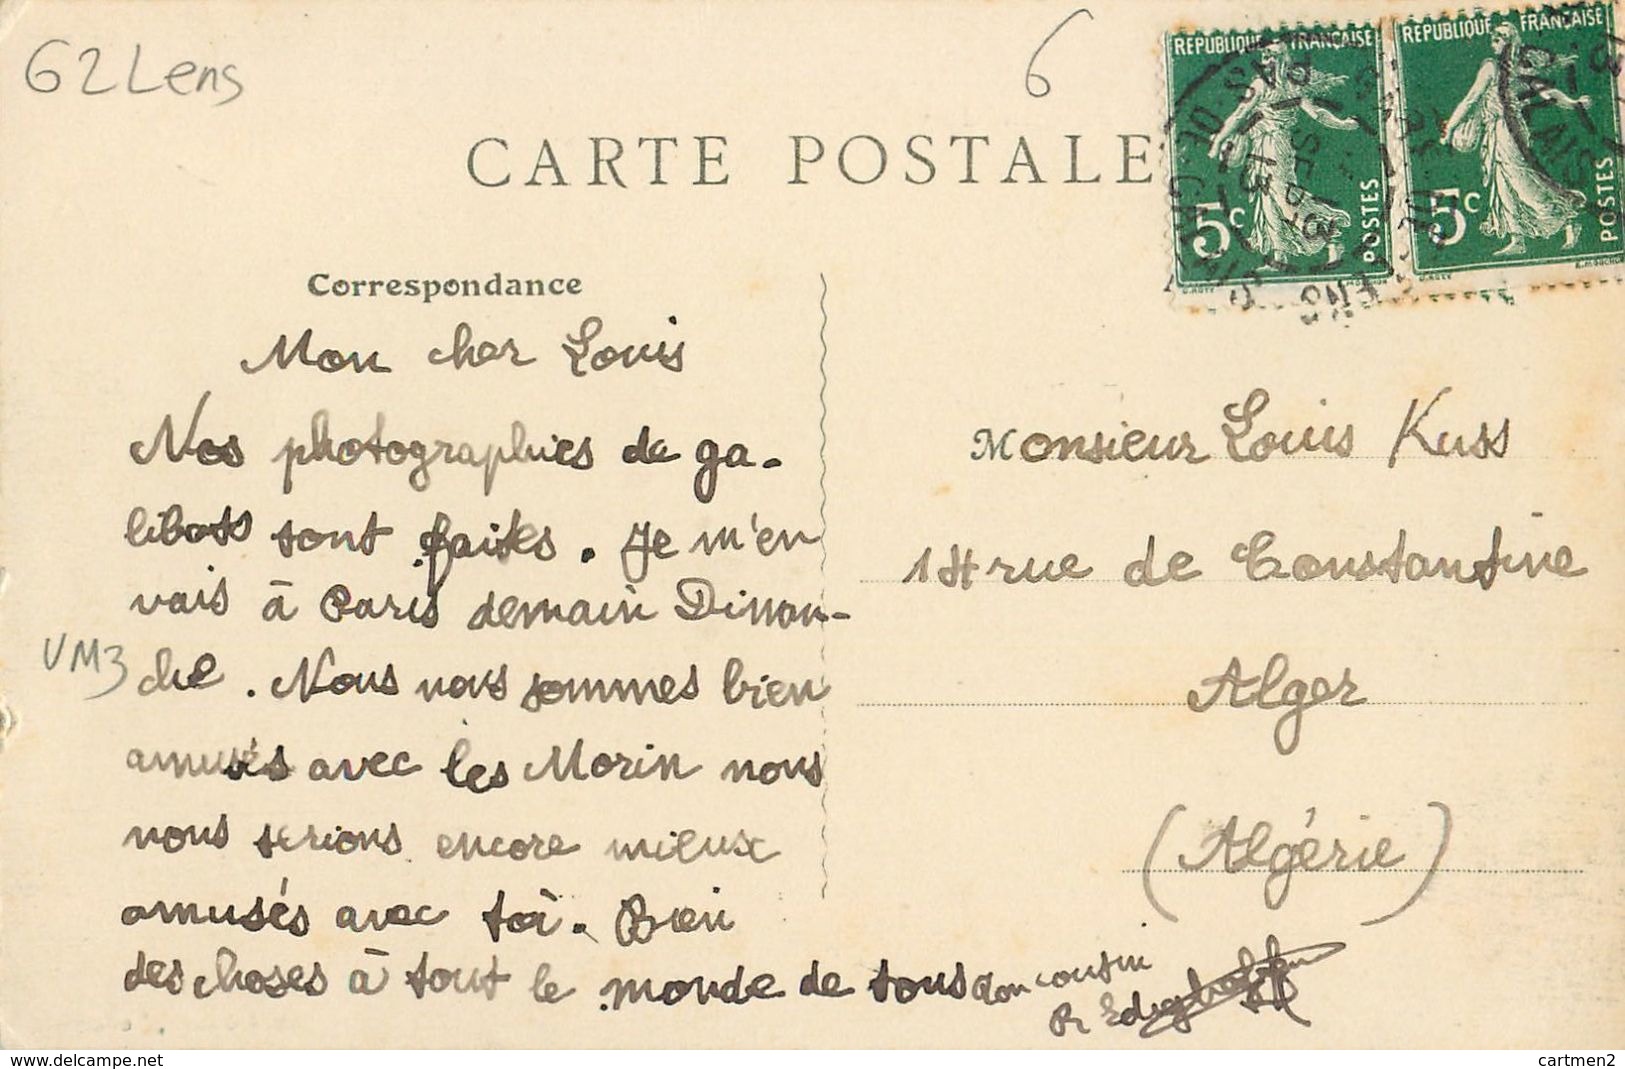 62 Lens
6
RÉPUBLIQUE FRANÇAISE
5c POSTES
RÉPUBLIQUE FRANÇAISE
5c POSTES
PAS-DE-CALAIS
13 SEPT
CARTE POSTALE
Correspondance
Mon cher Louis
Nos photographies de ga-
libots sont faites. Je m'en
vais à Paris demain Diman-
che. Nous nous sommes bien
amusés avec les Morin nous
nous serions encore mieux
amusés avec toi. Bien
des choses à tout le monde de tous
Ton cousin
VM3
Monsieur Louis Kuss
14 rue de Constantine
Alger
(Algérie)
www.delcampe.net
cartmen2